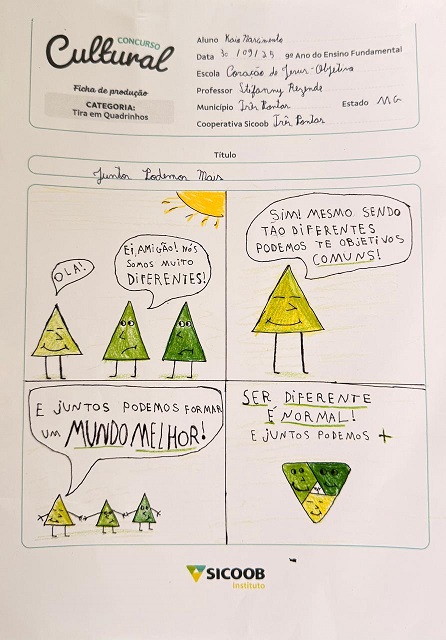 CONCURSO
Cultural
Ficha de produção
CATEGORIA:
Tira em Quadrinhos
Aluno Kaio Nascimento
Data 30/09/25 9º Ano do Ensino Fundamental
Escola Coração de Jesus - Objetivo
Professor Stefanny Rezende
Município Três Pontas Estado MG
Cooperativa Sicoob Três Pontas
Título
Juntos Podemos Mais
OLA!
EI, AMIGÃO! NÓS
SOMOS MUITO
DIFERENTES!
SIM! MESMO SENDO
TAO DIFERENTES
PODEMOS TE OBJETIVOS
COMUNS!
E JUNTOS PODEMOS FORMAR
UM MUNDO MELHOR!
SER DIFERENTE
É NORMAL!
E JUNTOS PODEMOS +
SICOOB
Instituto